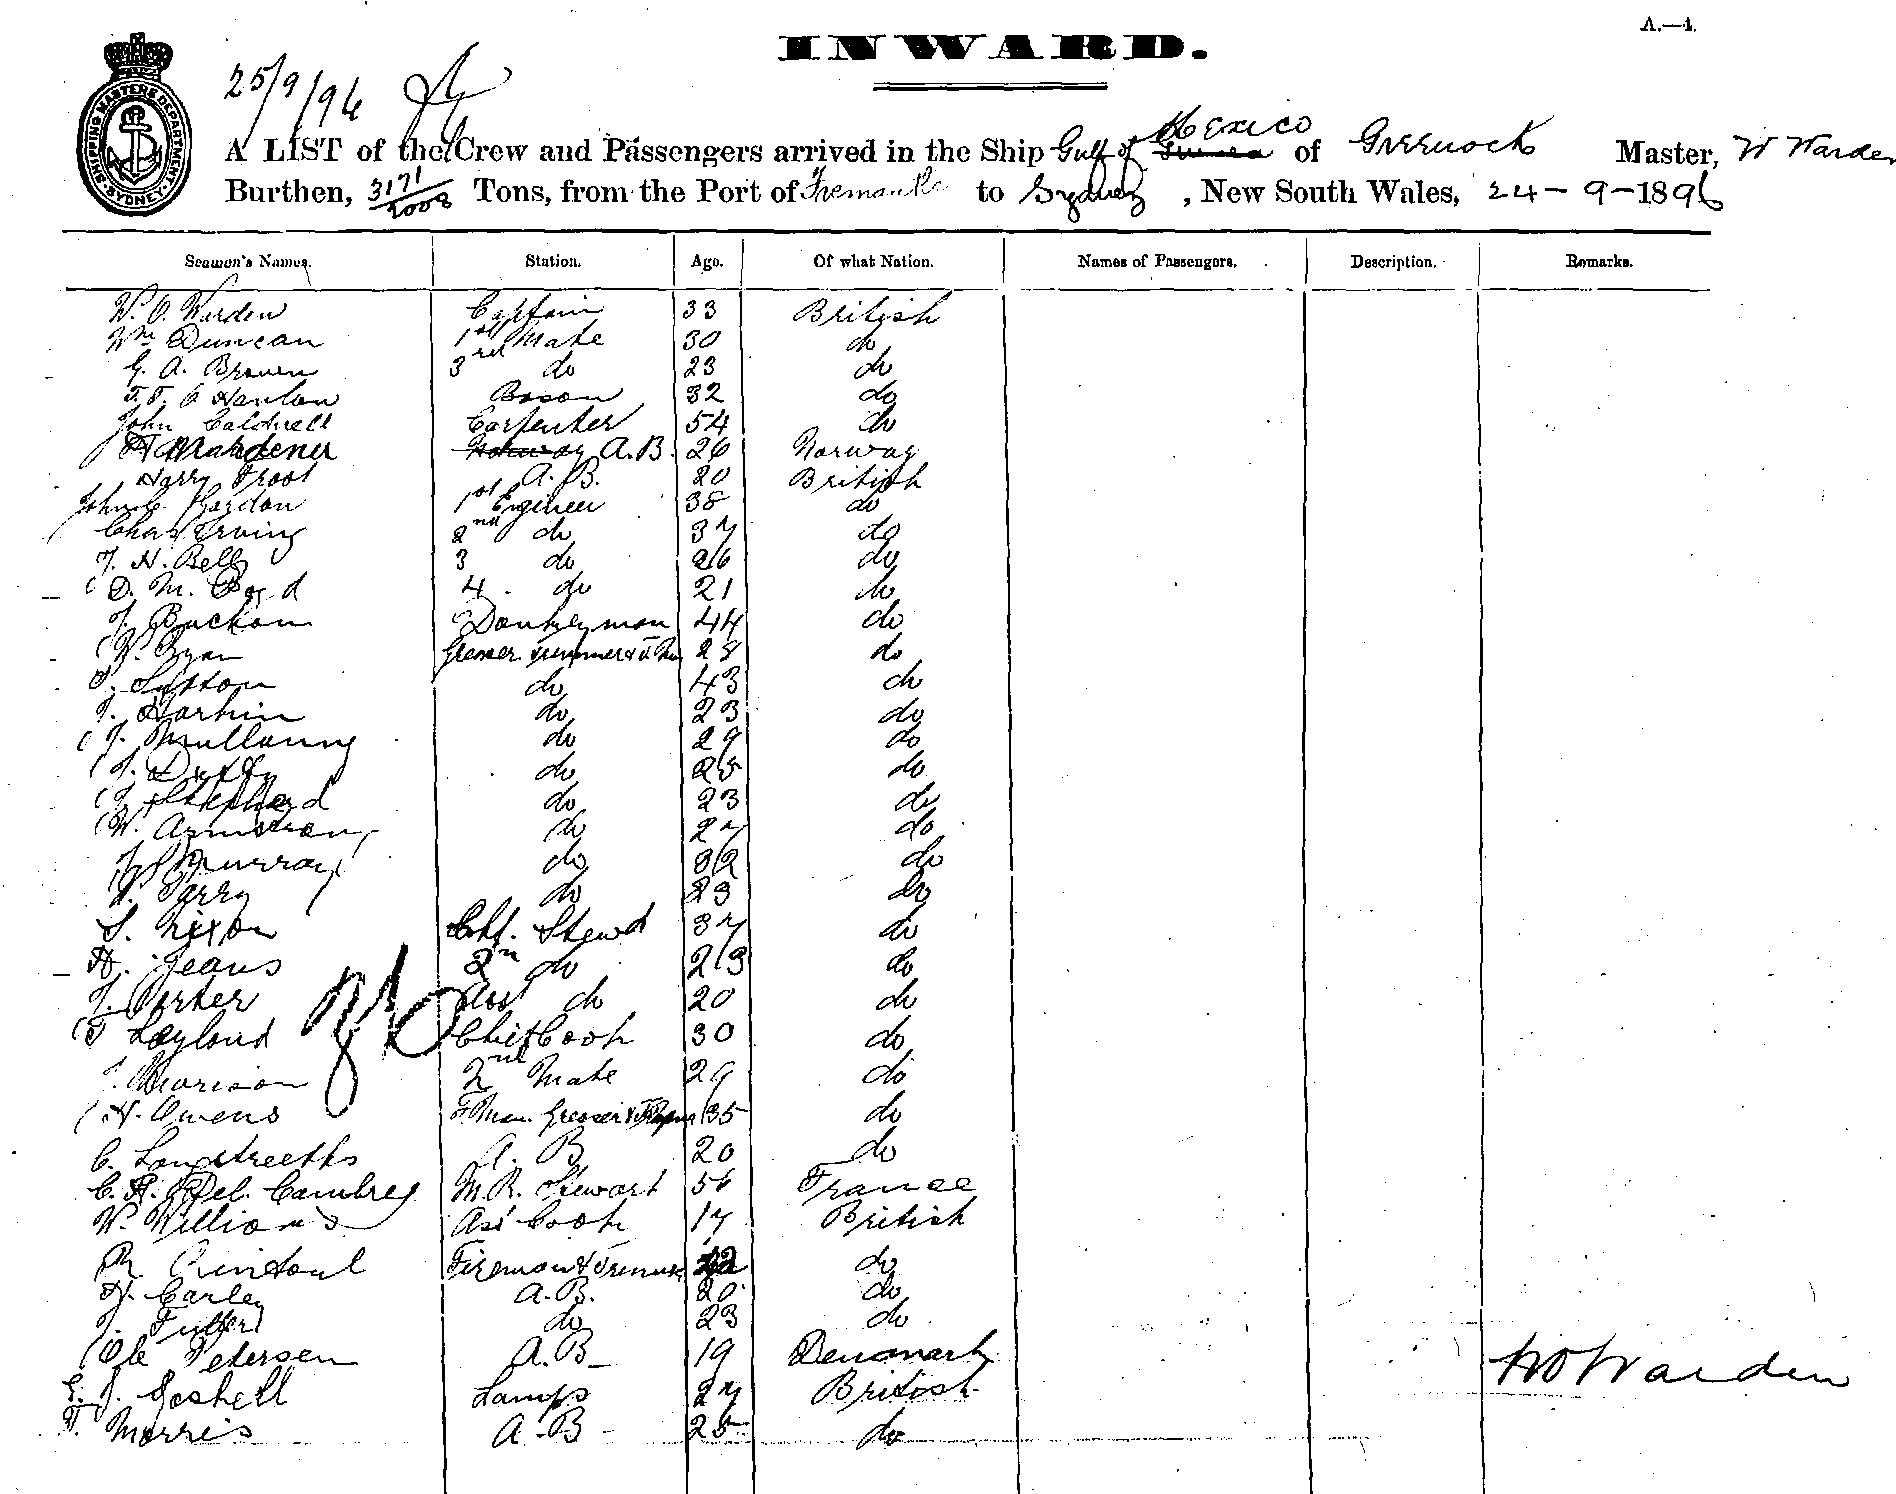 A.—4.
INWARD.
25/9/96
SHIPPING MASTERS DEPARTMENT SYDNEY
A LIST of the Crew and Passengers arrived in the Ship Gulf of Mexico of Greenock Master, W Warden
Burthen, 3171/2008 Tons, from the Port of Fremantle to Sydney, New South Wales, 24-9-1896
Seamen's Names. Station. Age. Of what Nation. Names of Passengers. Description. Remarks.
W. O. Warden Captain 33 British
Wm Duncan 1st Mate 30 do
G. A. Brown 3rd do 23 do
F. F. O Hanlon Boson 32 do
John Caldwell Carpenter 54 do
Norway A.B. 26 Norway
Harry Frost A.B. 20 British
John C. Gordon 1st Engineer 38 do
Chas Irving 2nd do 37 do
J. H. Bell 3 do 26 do
D. M. Boyd 4 do 21 do
J. Buckom Donkeyman 44 do
W. Ryan Greaser trimmer & 28 do
T. Sutton do 43 do
J. Harkin do 23 do
J. Mullanny do 29 do
J. Duffy do 25 do
J. Shepherd do 23 do
W. Armstrong do 27 do
J. Murray do 32 do
Parry do 23 do
S. Nixon Chf. Stewd 37 do
H. Jeans 2n do 23 do
J. Porter Ass do 20 do
T Leyland Chief Cook 30 do
J. Morison 2nd Mate 29 do
H. Owens F. Man. Greaser & 35 do
C. Longstreeths A. B 20 do
C. H. Del. Cambreg M.R. Stewart 56 France
W. Williams Ass Cook 17 British
R Fireman & Trimmer do
H. Carley A.B. 20 do
J. Fuller do 23 do
Ole Petersen A.B 19 Denmark W O Warden
E. J. Geshell Lamps 27 British
T. Morris A.B 25 do